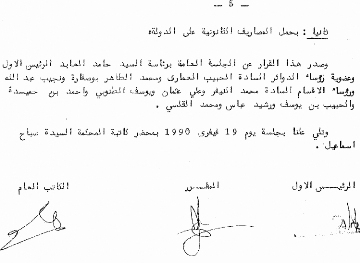 — 5 —
ثانيا : بحمل المصاريف القانونية على الدولة.
وصدر هذا القرار عن الجلسة العامة برئاسة السيد حامد العابد الرئيس الاول
وعضوية رؤساء الدوائر السادة الحبيب العماري ومحمد الطاهر بوصفارة ونجيب عبد الله
ورؤساء الاقسام السادة محمد النيفر وعلي عثمان ويوسف الطنوبي واحمد بن حميدة
والحبيب بن يوسف ورشيد عباس ومحمد القلسي .
وتلي علنا بجلسة يوم 19 فيفري 1990 بمحضر كاتبة المحكمة السيدة سباح
اسماعيل .
الرئيس الاول المقرر الكاتب العام